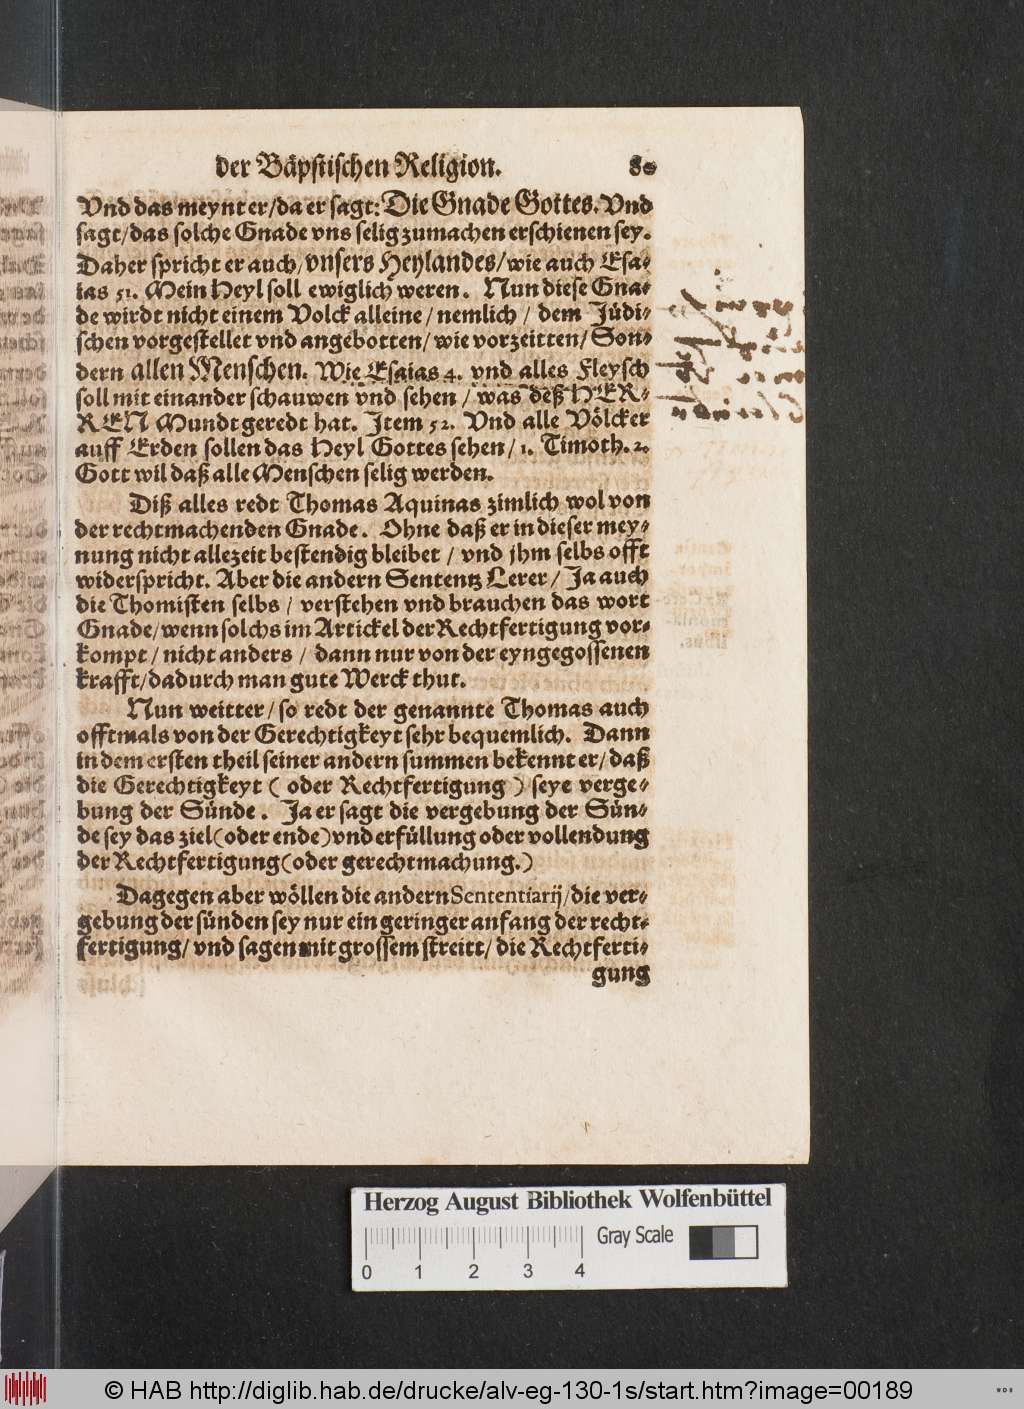 der Bäpstischen Religion. 80
Vnd das meynt er/da er sagt: Die Gnade Gottes. Vnd
sagt/das solche Gnade vns selig zumachen erschienen sey.
Daher spricht er auch/vnsers Heylandes/wie auch Esa-
ias 51. Mein Heyl soll ewiglich weren. Nun diese Gna-
de wirdt nicht einem Volck alleine/nemlich/ dem Jüdi-
schen vorgestellet vnd angebotten/ wie vorzeitten/ Son-
dern allen Menschen. Wie Esaias 4. vnd alles Fleysch
soll mit einander schauwen vnd sehen/ was deß HER-
REN Mundt geredt hat. Item 52. Vnd alle Völcker
auff Erden sollen das Heyl Gottes sehen/ 1. Timoth. 2.
Gott wil daß alle Menschen selig werden.
Diß alles redt Thomas Aquinas zimlich wol von
der rechtmachenden Gnade. Ohne daß er in dieser mey-
nung nicht allezeit bestendig bleibet/ vnd jhm selbs offt
widerspricht. Aber die andern Sententz Lerer/ Ja auch
die Thomisten selbs/ verstehen vnd brauchen das wort
Gnade/wenn solchs im Artickel der Rechtfertigung vor-
kompt/ nicht anders/ dann nur von der eyngegossenen
krafft/dadurch man gute Werck thut.
Nun weitter/ so redt der genannte Thomas auch
offtmals von der Gerechtigkeyt sehr bequemlich. Dann
in dem ersten theil seiner andern summen bekennt er/ daß
die Gerechtigkeyt (oder Rechtfertigung) seye verge-
bung der Sünde. Ja er sagt die vergebung der Sün-
de sey das ziel(oder ende)vnd erfüllung oder vollendung
der Rechtfertigung(oder gerechtmachung.)
Dagegen aber wöllen die andern Sententiarij/die ver-
gebung der sünden sey nur ein geringer anfang der recht-
fertigung/ vnd sagen mit grossem streitt/ die Rechtferti-
gung
Herzog August Bibliothek Wolfenbüttel
Gray Scale
0 1 2 3 4
© HAB http://diglib.hab.de/drucke/alv-eg-130-1s/start.htm?image=00189